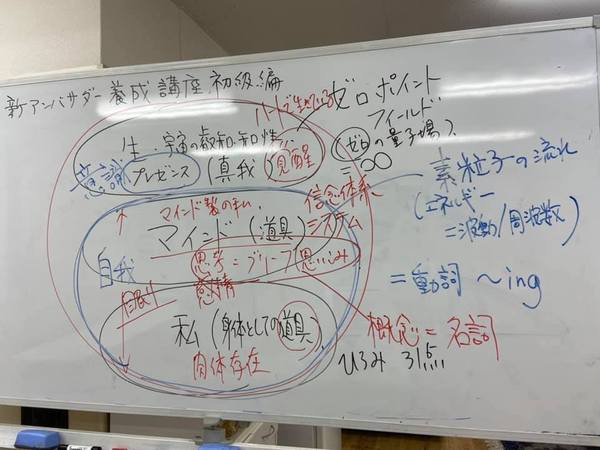 新アンバサダー養成講座初級編
ハートで生きている
ゼロポイント
フィールド
(ゼロの量子場)
=∞
生・宇宙の叡知・知性
意識 プレゼンス (真我) 覚醒
素粒子の流れ
(エネルギー
=波動/周波数)
=動詞 ~ing
マインド製の私
信念体系
システム
マインド(道具)
自我
思考=ビリーフ 思い込み
感情
眠り
私(身体としての道具)
肉体存在
概念=名詞
ひろみ 31点